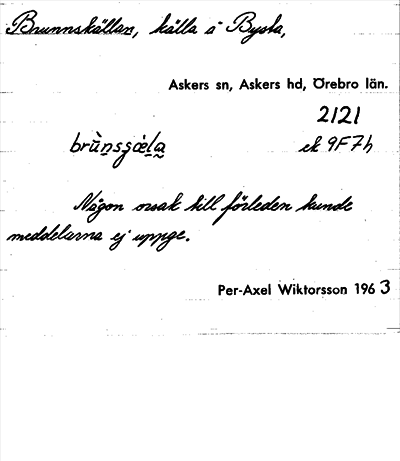 Brunnskällan, källa å Bysta,
Askers sn, Askers hd, Örebro län.
2121
ek 9F7h
Någon orsak till förleden kunde
meddelarna ej uppge.
Per-Axel Wiktorsson 1963